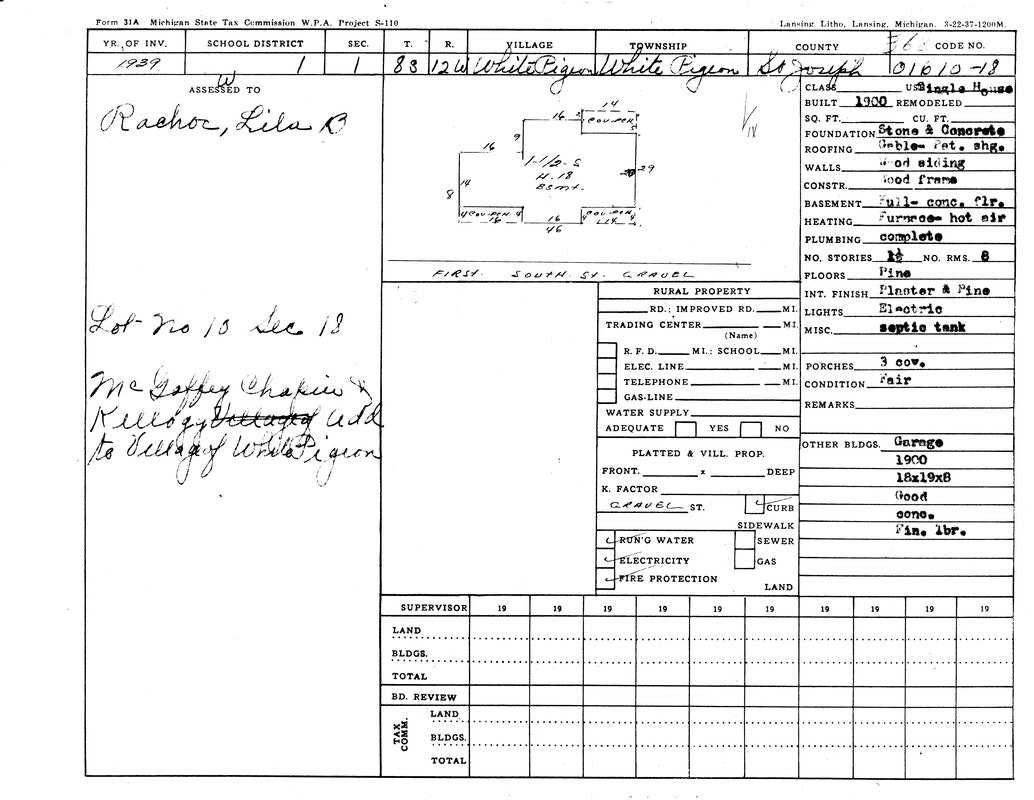 Form 31A Michigan State Tax Commission W.P.A. Project S-110
Lansing Litho, Lansing, Michigan. 3-22-37-1200M.
YR. OF INV. SCHOOL DISTRICT SEC. T. R. VILLAGE TOWNSHIP COUNTY CODE NO.
1939 W 1 1 8 S 12 W White Pigeon White Pigeon St Joseph 01610-18
ASSESSED TO
Rachoc, Lila B
Lot No 10 Sec 18
McGaffey Chapin &
Kellogg Village of Add
to Village of White Pigeon
14
16 COV. PCH. 5
9
16
1-1/2-S
H. 18
Bsmt.
29
14
8
4 COV. PCH. 4 16 COV. PCH.
16 14
46
FIRST. SOUTH. ST. GRAVEL
CLASS USE Single House
BUILT 1900 REMODELED
SQ. FT. CU. FT.
FOUNDATION Stone & Concrete
ROOFING Gable- Pat. shg.
WALLS Wood siding
CONSTR. Wood frame
BASEMENT Full- conc. flr.
HEATING Furnace- hot air
PLUMBING complete
NO. STORIES 1½ NO. RMS. 8
FLOORS Pine
INT. FINISH Plaster & Pine
LIGHTS Electric
MISC. septic tank
PORCHES 3 cov.
CONDITION Fair
REMARKS
OTHER BLDGS. Garage
1900
18x19x8
Good
conc.
Fin. lbr.
RURAL PROPERTY
RD.; IMPROVED RD. MI.
TRADING CENTER MI.
(Name)
R. F. D. MI.; SCHOOL MI.
ELEC. LINE MI.
TELEPHONE MI.
GAS-LINE
WATER SUPPLY
ADEQUATE YES NO
PLATTED & VILL. PROP.
FRONT. x DEEP
K. FACTOR
GRAVEL ST. CURB
SIDEWALK
RUN'G WATER SEWER
ELECTRICITY GAS
FIRE PROTECTION
LAND
SUPERVISOR 19 19 19 19 19 19 19 19 19 19
LAND
BLDGS.
TOTAL
BD. REVIEW
TAX COMM.
LAND
BLDGS.
TOTAL